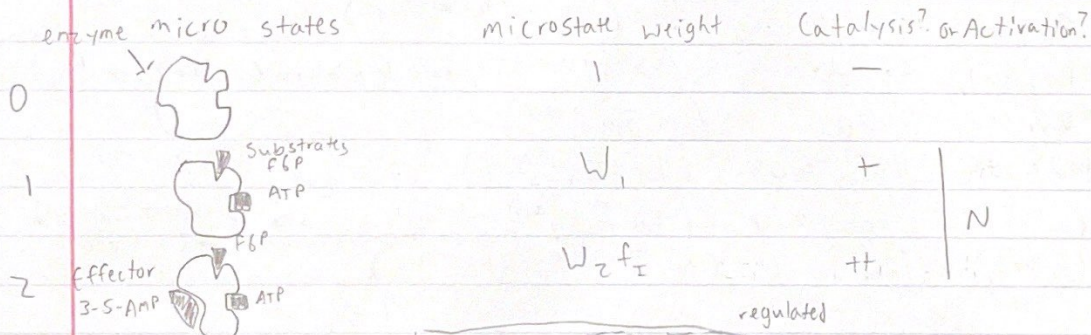 enzyme micro states microstate weight Catalysis? or Activation?
0 1 —
Substrates
F6P
1 ATP W₁ + N
F6P
2 Effector W₂ f_I ++
3-5-AMP ATP
regulated